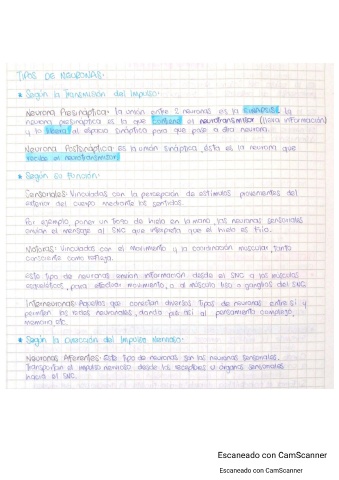 TIPOS DE NEURONAS.
* Según la Transmisión del Impulso.
Neurona Presináptica: la unión entre 2 neuronas es la sinapsis, la
neurona presináptica es la que contiene el neurotransmisor (lleva información)
y lo libera al espacio sináptico para que pase a otra neurona.
Neurona Postsináptica: es la unión sináptica, ésta es la neurona que
recibe el neurotransmisor.
* Según su Función.
Sensoriales: Vinculadas con la percepción de estímulos provenientes del
exterior del cuerpo mediante los sentidos.
Por ejemplo, poner un trozo de hielo en la mano, las neuronas sensoriales
envían el mensaje al SNC que interpreta que el hielo es Frío.
Motoras: Vinculadas con el movimiento y la coordinación muscular, tanto
consciente como refleja.
Este tipo de neuronas envían información desde el SNC a los músculos
esqueléticos, para efectuar movimiento, o al músculo liso o ganglios del SNC.
Interneuronas: Aquellas que conectan diversos tipos de neuronas entre sí y
permiten las redes neuronales, dando pie así al pensamiento complejo,
memoria etc.
* Según la Dirección del Impulso Nervioso.
Neuronas Aferentes: Este tipo de neuronas son las neuronas sensoriales.
Transportan el impulso nervioso desde los receptores u órganos sensoriales
hacia el SNC.
Escaneado con CamScanner
Escaneado con CamScanner